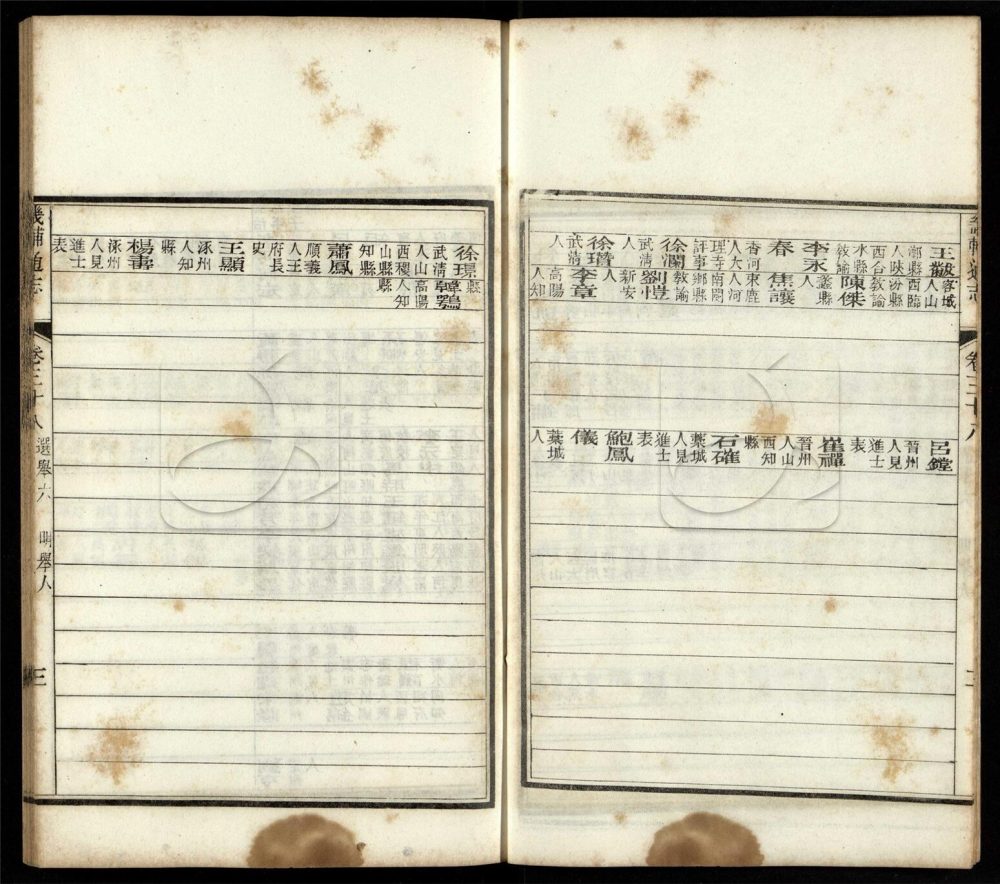 畿輔通志
卷三十八
王
漷縣
人陝
西合
水縣
教諭
李永
春
香河
人大
理寺
評事
徐瀾
武清
人
徐瓚
武清
人
容城
人山
西臨
汾縣
教諭
陳傑
蠡縣
人
焦讓
束鹿
人河
南閿
鄉縣
教諭
劉愷
新安
人
李章
高陽
人知
呂鏜
晉州
人見
進士
表
崔禪
晉州
人山
西知
縣
石確
藁城
人見
進士
表
鮑鳳
儀
藁城
人
徐璟
武清
人山
西稷
山縣
知縣
蕭鳳
順義
人王
府長
史
王顯
涿州
人知
縣
楊壽
涿州
人見
進士
表
縣
韓鶚
高陽
人知
縣
畿輔通志
卷三十八 選舉六 明舉人
三